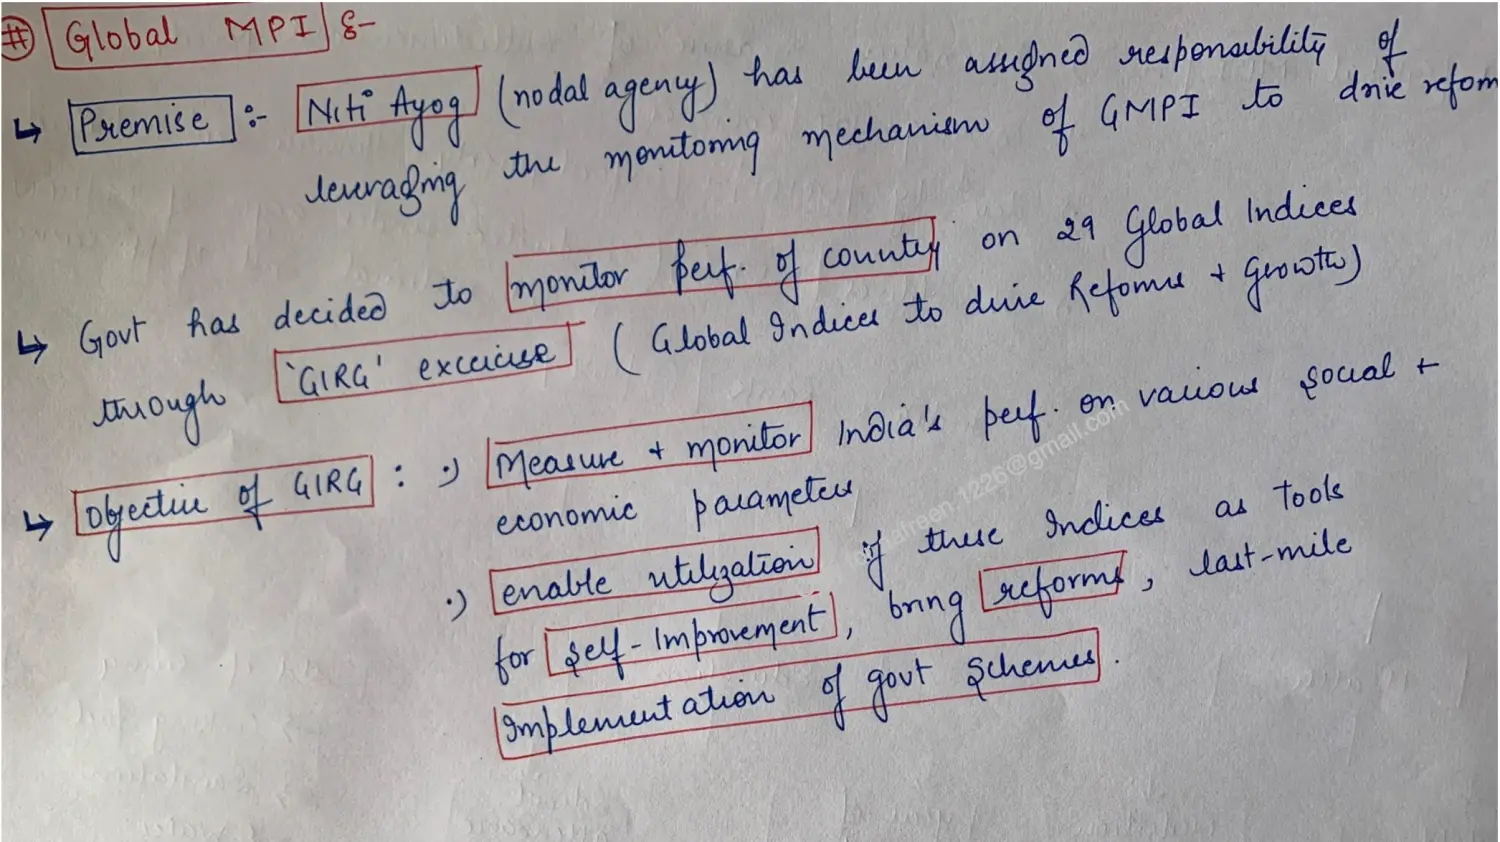 # Global MPI :-
↳ Premise :- Niti Ayog (nodal agency) has been assigned responsibility of
leveraging the monitoring mechanism of GMPI to drive reform
↳ Govt has decided to monitor perf. of country on 29 Global Indices
through 'GIRG' excercise (Global Indices to drive Reforms + Growth)
↳ Objective of GIRG : •) Measure + monitor India's perf. on various social +
economic parameters
•) enable utilization of these Indices as Tools
for self-Improvement, bring reforms, last-mile
Implementation of govt schemes.